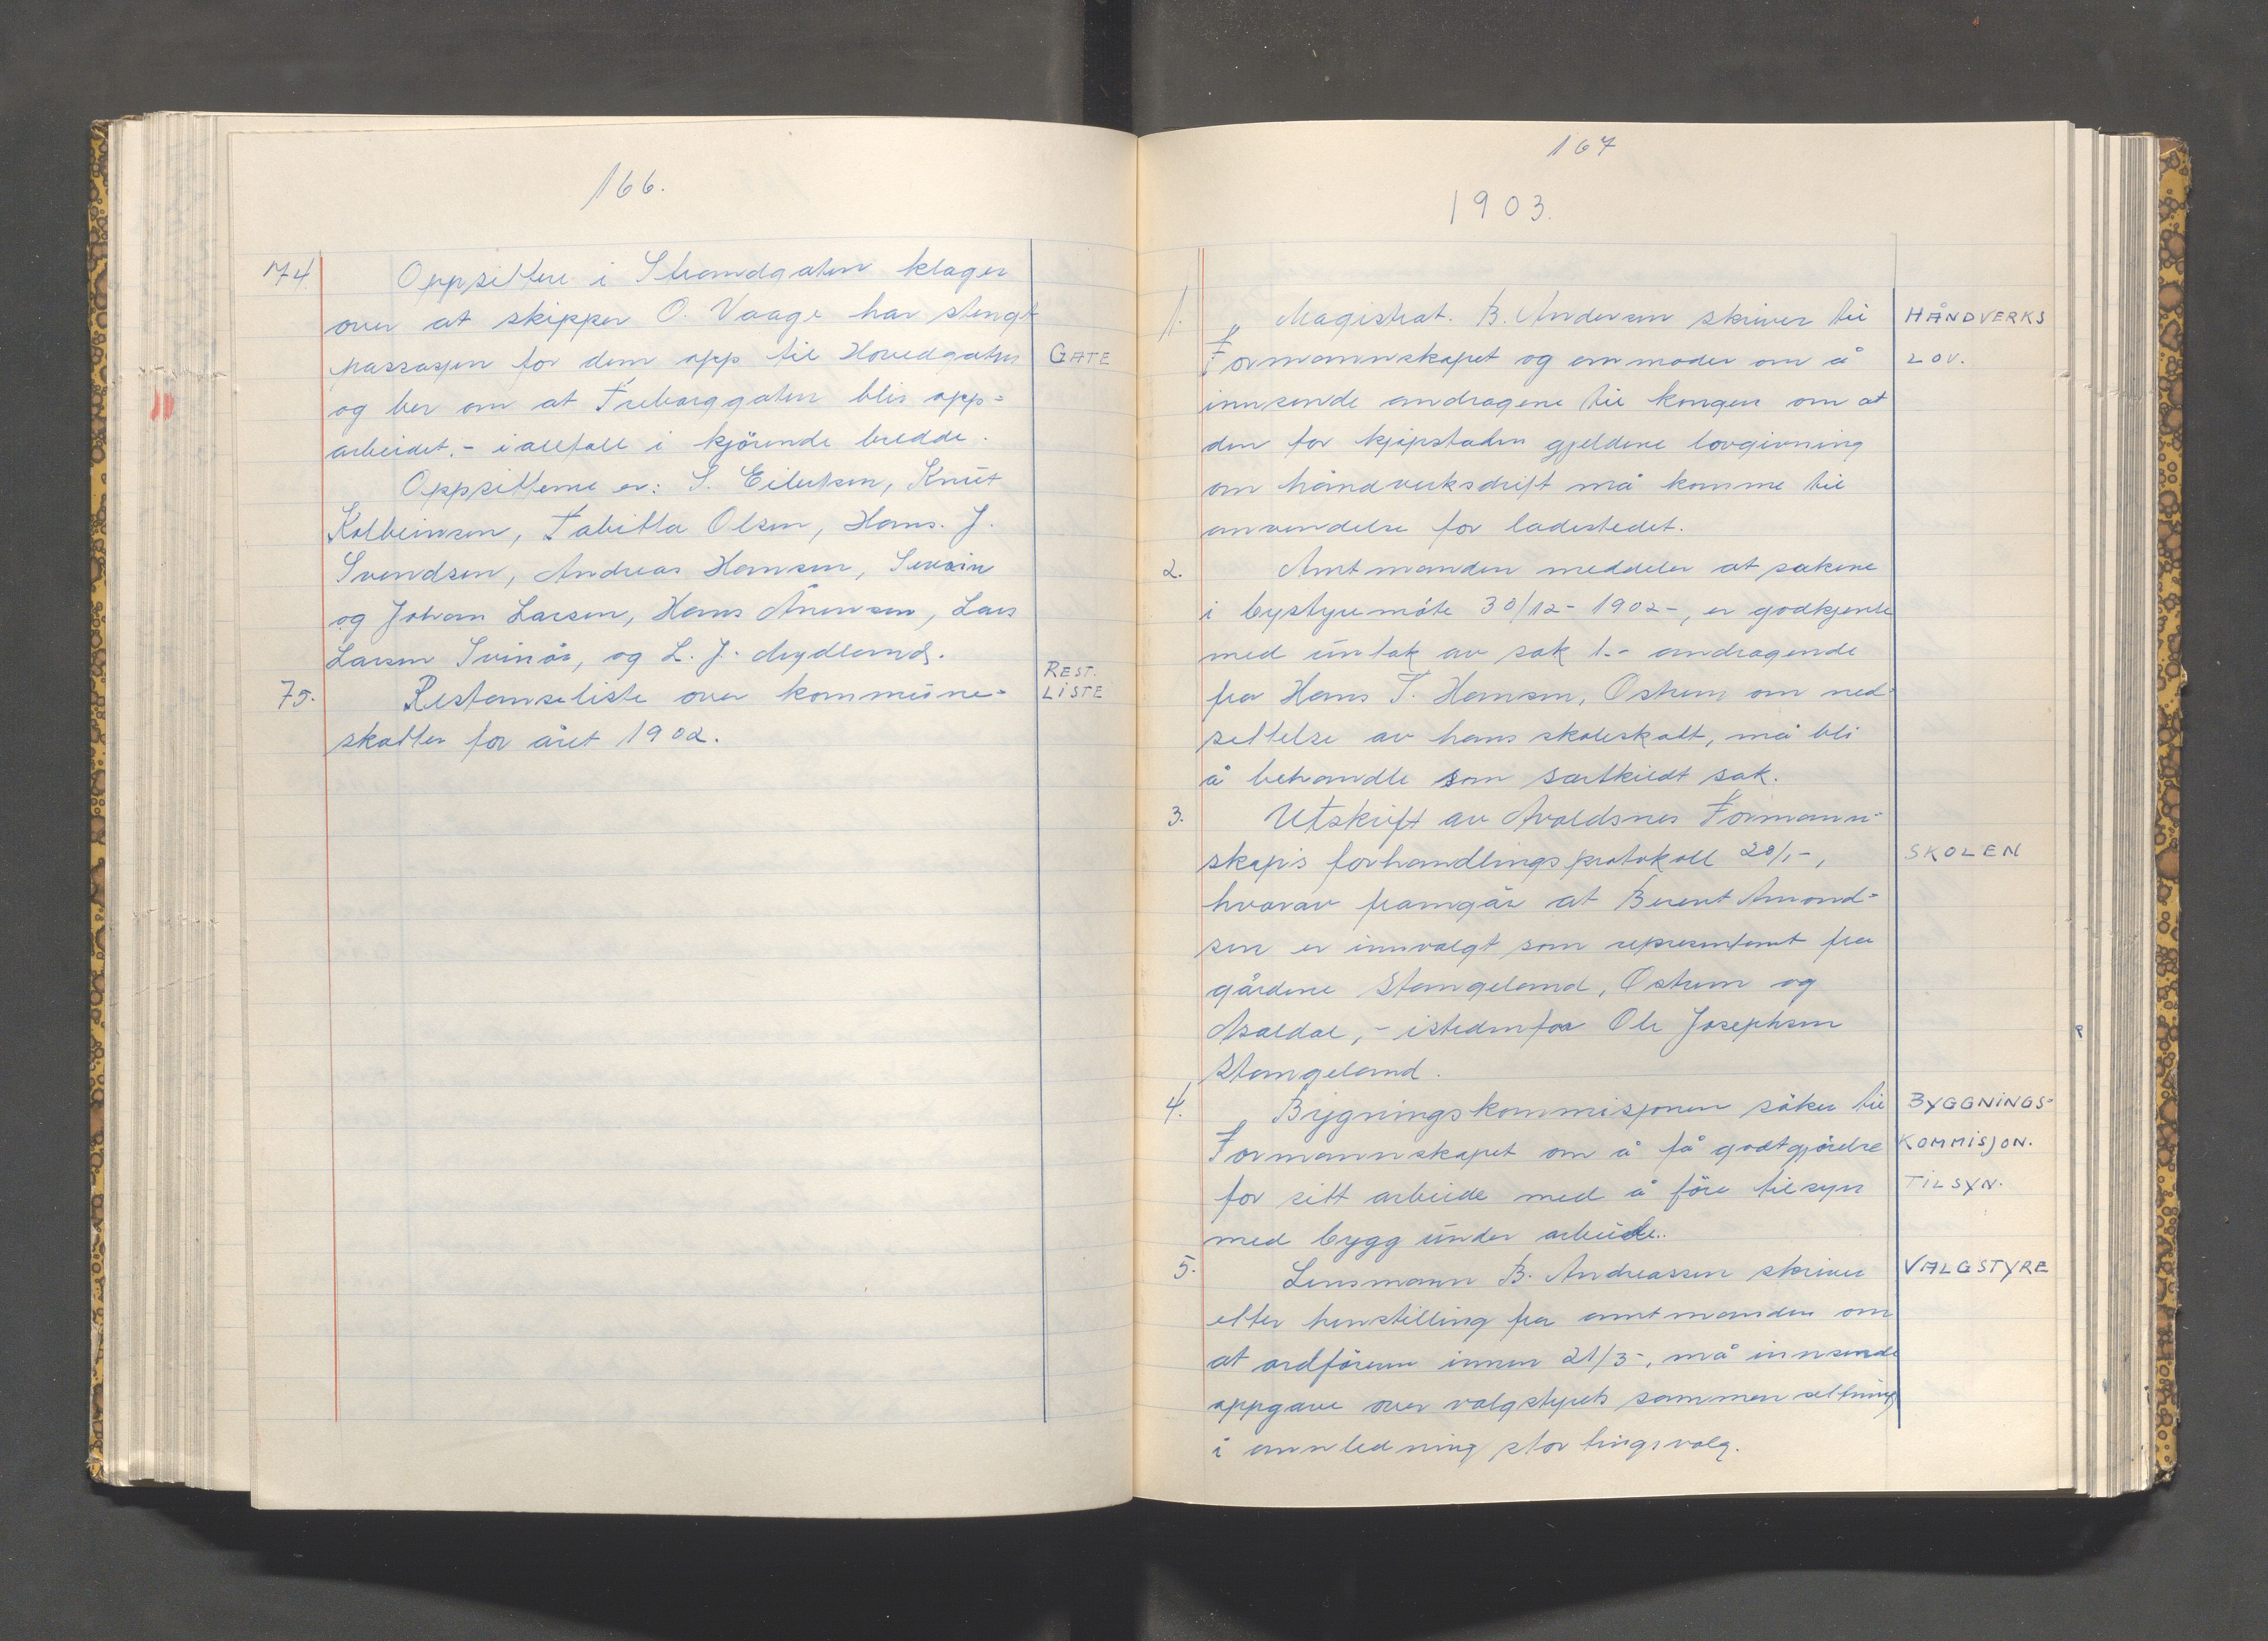 166.
74. Oppsittere i Strandgaten klager
over at skipper O. Vaage har stengt
passasjen for dem opp til Hovedgaten GATE
og ber om at Treborggaten blir opp=
arbeidet. - i allfall i kjörende bredde.
Oppsitterne er: S. Eilertsen, Knut
Kolbeinsen, Tabitta Olsen, Hans. J.
Svendsen, Andreas Hansen, Severin
og Johan Larsen, Hans Ånensen, Lars
Larsen Svinås, og L. J. Mydland.
75. Restanseliste over kommune= REST. LISTE
skatter for året 1902.
167
1903.
1. Magistrat. B. Andersen skriver til HÅNDVERKS
Formannskapet og anmoder om å LOV.
innsende andragene til kongen om at
den for kjöpstaden gjeldene lovgivning
om håndverksdrift må komme til
anvendelse for ladestedet.
2. Amtmanden meddeler at sakene
i bystyremöte 30/12 - 1902 -, er godkjente
med untak av sak 1. - andragende
fra Hans T. Hansen, Østrem om ned=
settelse av hans skoleskatt, må bli
å behandle som særskildt sak.
3. Utskrift av Avaldsnes Formann=
skaps forhandlingsprotokoll 20/1 -, SKOLEN
hvorav framgår at Berent Amond=
sen er innvalgt som representant fra
gårdene Stangeland, Østrem og
Asaldal, - istedenfor Ole Josephsen
Stangeland.
4. Bygningskommisjonen söker til BYGGNINGS=
Formannskapet om å få godtgjörelse KOMMISJON.
for sitt arbeide med å före tilsyn TILSYN.
med bygg under arbeide.
5. Lensmann B. Andreassen skriver VALGSTYRE
etter henstilling fra amtmanden om
at ordföreren innen 21/3 -, må innsende
oppgave over valgstyrets sammensetning
i annledning stortingsvalg.